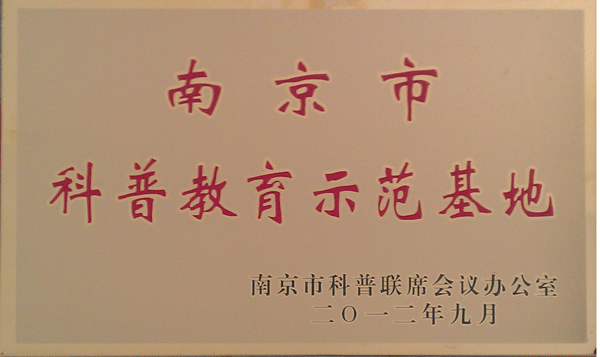 南京市
科普教育示范基地
南京市科普联席会议办公室
二〇一二年九月